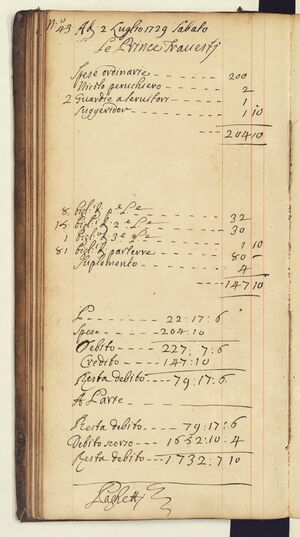 N.º 43 Ad 2 Luglio 1729 Sabato
Le Prince Travesti
Spese ordinarie - - - - 200
Nietto peruchiero - - - - 2
2 Guardie a servitori - - - 1
Suggeridor - - - - 1 10
204 10
8 bigl:ti p.e Le - - - 32
15 bigl:ti 2.e Le - - - 30
1 bigl:to 3.e Le - - - 1 10
81 bigl:ti parterre - - - 80 -
Suplemento - - - - 4
147 10
P - - - - 22:17:6
Spese - - - 204:10
Debito - - - 227 7:6
Credito - - - 147:10
Resta debito - - - 79:17:6
A Parte - - - -
Resta debito - - - 79:17:6
Debito scorso - - 1652:10:4
Resta debito - - - 1732:7 10
Raghetti